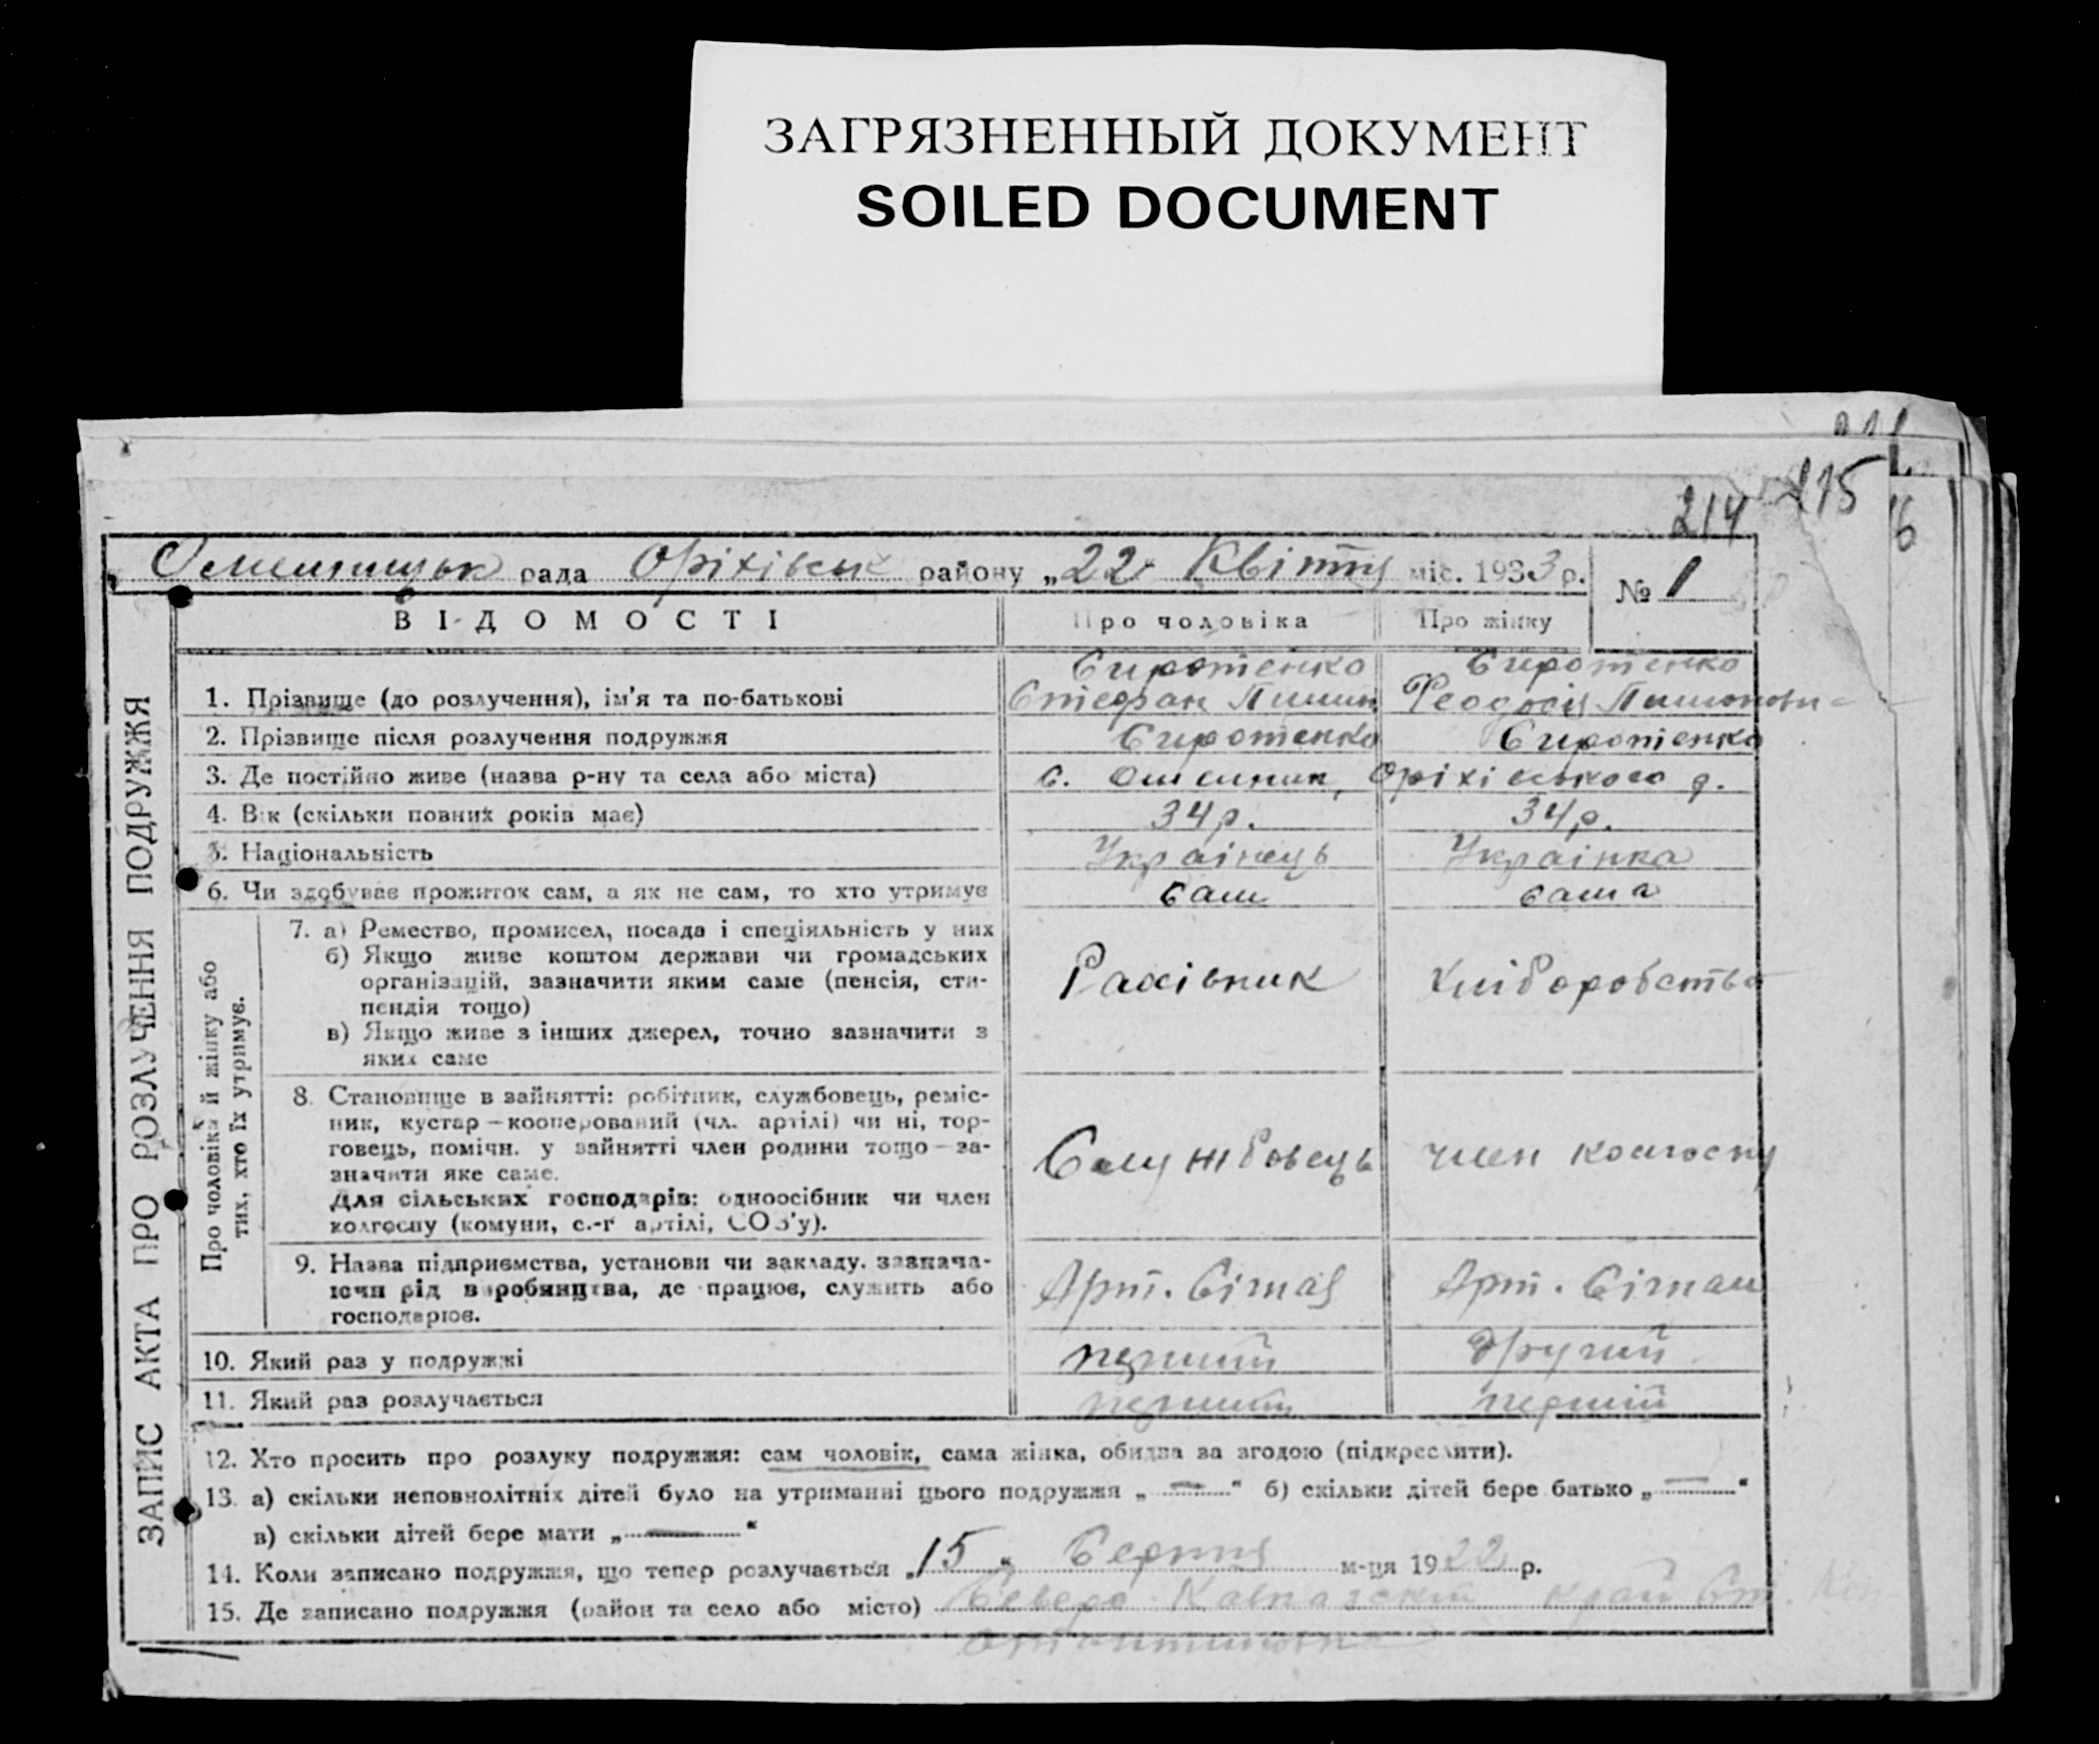 ЗАГРЯЗНЕННЫЙ ДОКУМЕНТ
SOILED DOCUMENT
215
214
рада Оріхівськ району „22" Квітня міс. 1933 р. № 1
ВІДОМОСТІ Про чоловіка Про жінку
Сиротенко Сиротенко
1. Прізвище (до розлучення), ім'я та по-батькові Стефан Пимон. Феодосія Пимонови-
2. Прізвище після розлучення подружжя Сиротенко Сиротенко
3. Де постійно живе (назва р-ну та села або міста) с. Омельник, Оріхівського р.
4. Вік (скільки повних років має) 34 р. 34 р.
5. Національність Українець Українка
6. Чи здобуває прожиток сам, а як не сам, то хто утримує сам сама
Про чоловіка й жінку або
тих, хто їх утримує.
7. а) Ремество, промисел, посада і спеціяльність у них
б) Якщо живе коштом держави чи громадських
організацій, зазначити яким саме (пенсія, сти-
пендія тощо)
в) Якщо живе з інших джерел, точно зазначити з
яких саме
Рахівник Хліборобство
8. Становище в зайнятті: робітник, службовець, реміс-
ник, кустар – кооперований (чл. артілі) чи ні, тор-
говець, помічн. у зайнятті член родини тощо – за-
значити яке саме.
Для сільських господарів: одноосібник чи член
колгоспу (комуни, с.-г артілі, СОЗ'у).
Службовець член колгоспу
9. Назва підприємства, установи чи закладу, зазнача-
ючи рід виробництва, де працює, служить або
господарює.
Арт. Арт.
10. Який раз у подружжі перший другий
11. Який раз розлучається перший перший
12. Хто просить про розлуку подружжя: сам чоловік, сама жінка, обидва за згодою (підкреслити).
13. а) скільки неповнолітніх дітей було на утриманні цього подружжя „—" б) скільки дітей бере батько „—"
в) скільки дітей бере мати „—"
14. Коли записано подружжя, що тепер розлучається „15" Серпня м-ця 1922 р.
15. Де записано подружжя (район та село або місто) Северо-Кавказский край Ст.
ЗАПИС АКТА ПРО РОЗЛУЧЕННЯ ПОДРУЖЖЯ